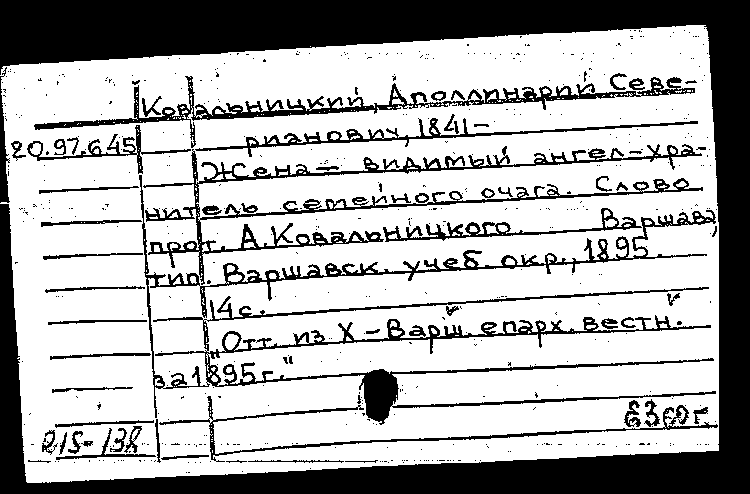 Ковальницкий, Аполлинарий Севе-
20.97.645 рианович, 1841-
Жена — видимый ангел-хра-
нитель семейного очага. Слово
прот. А. Ковальницкого. Варшава,
тип. Варшавск. учеб. окр., 1895.
14 с.
„Отт. из Х-Варш. епарх. вестн.
за 1895 г."
Е3 60 г.
R15-138